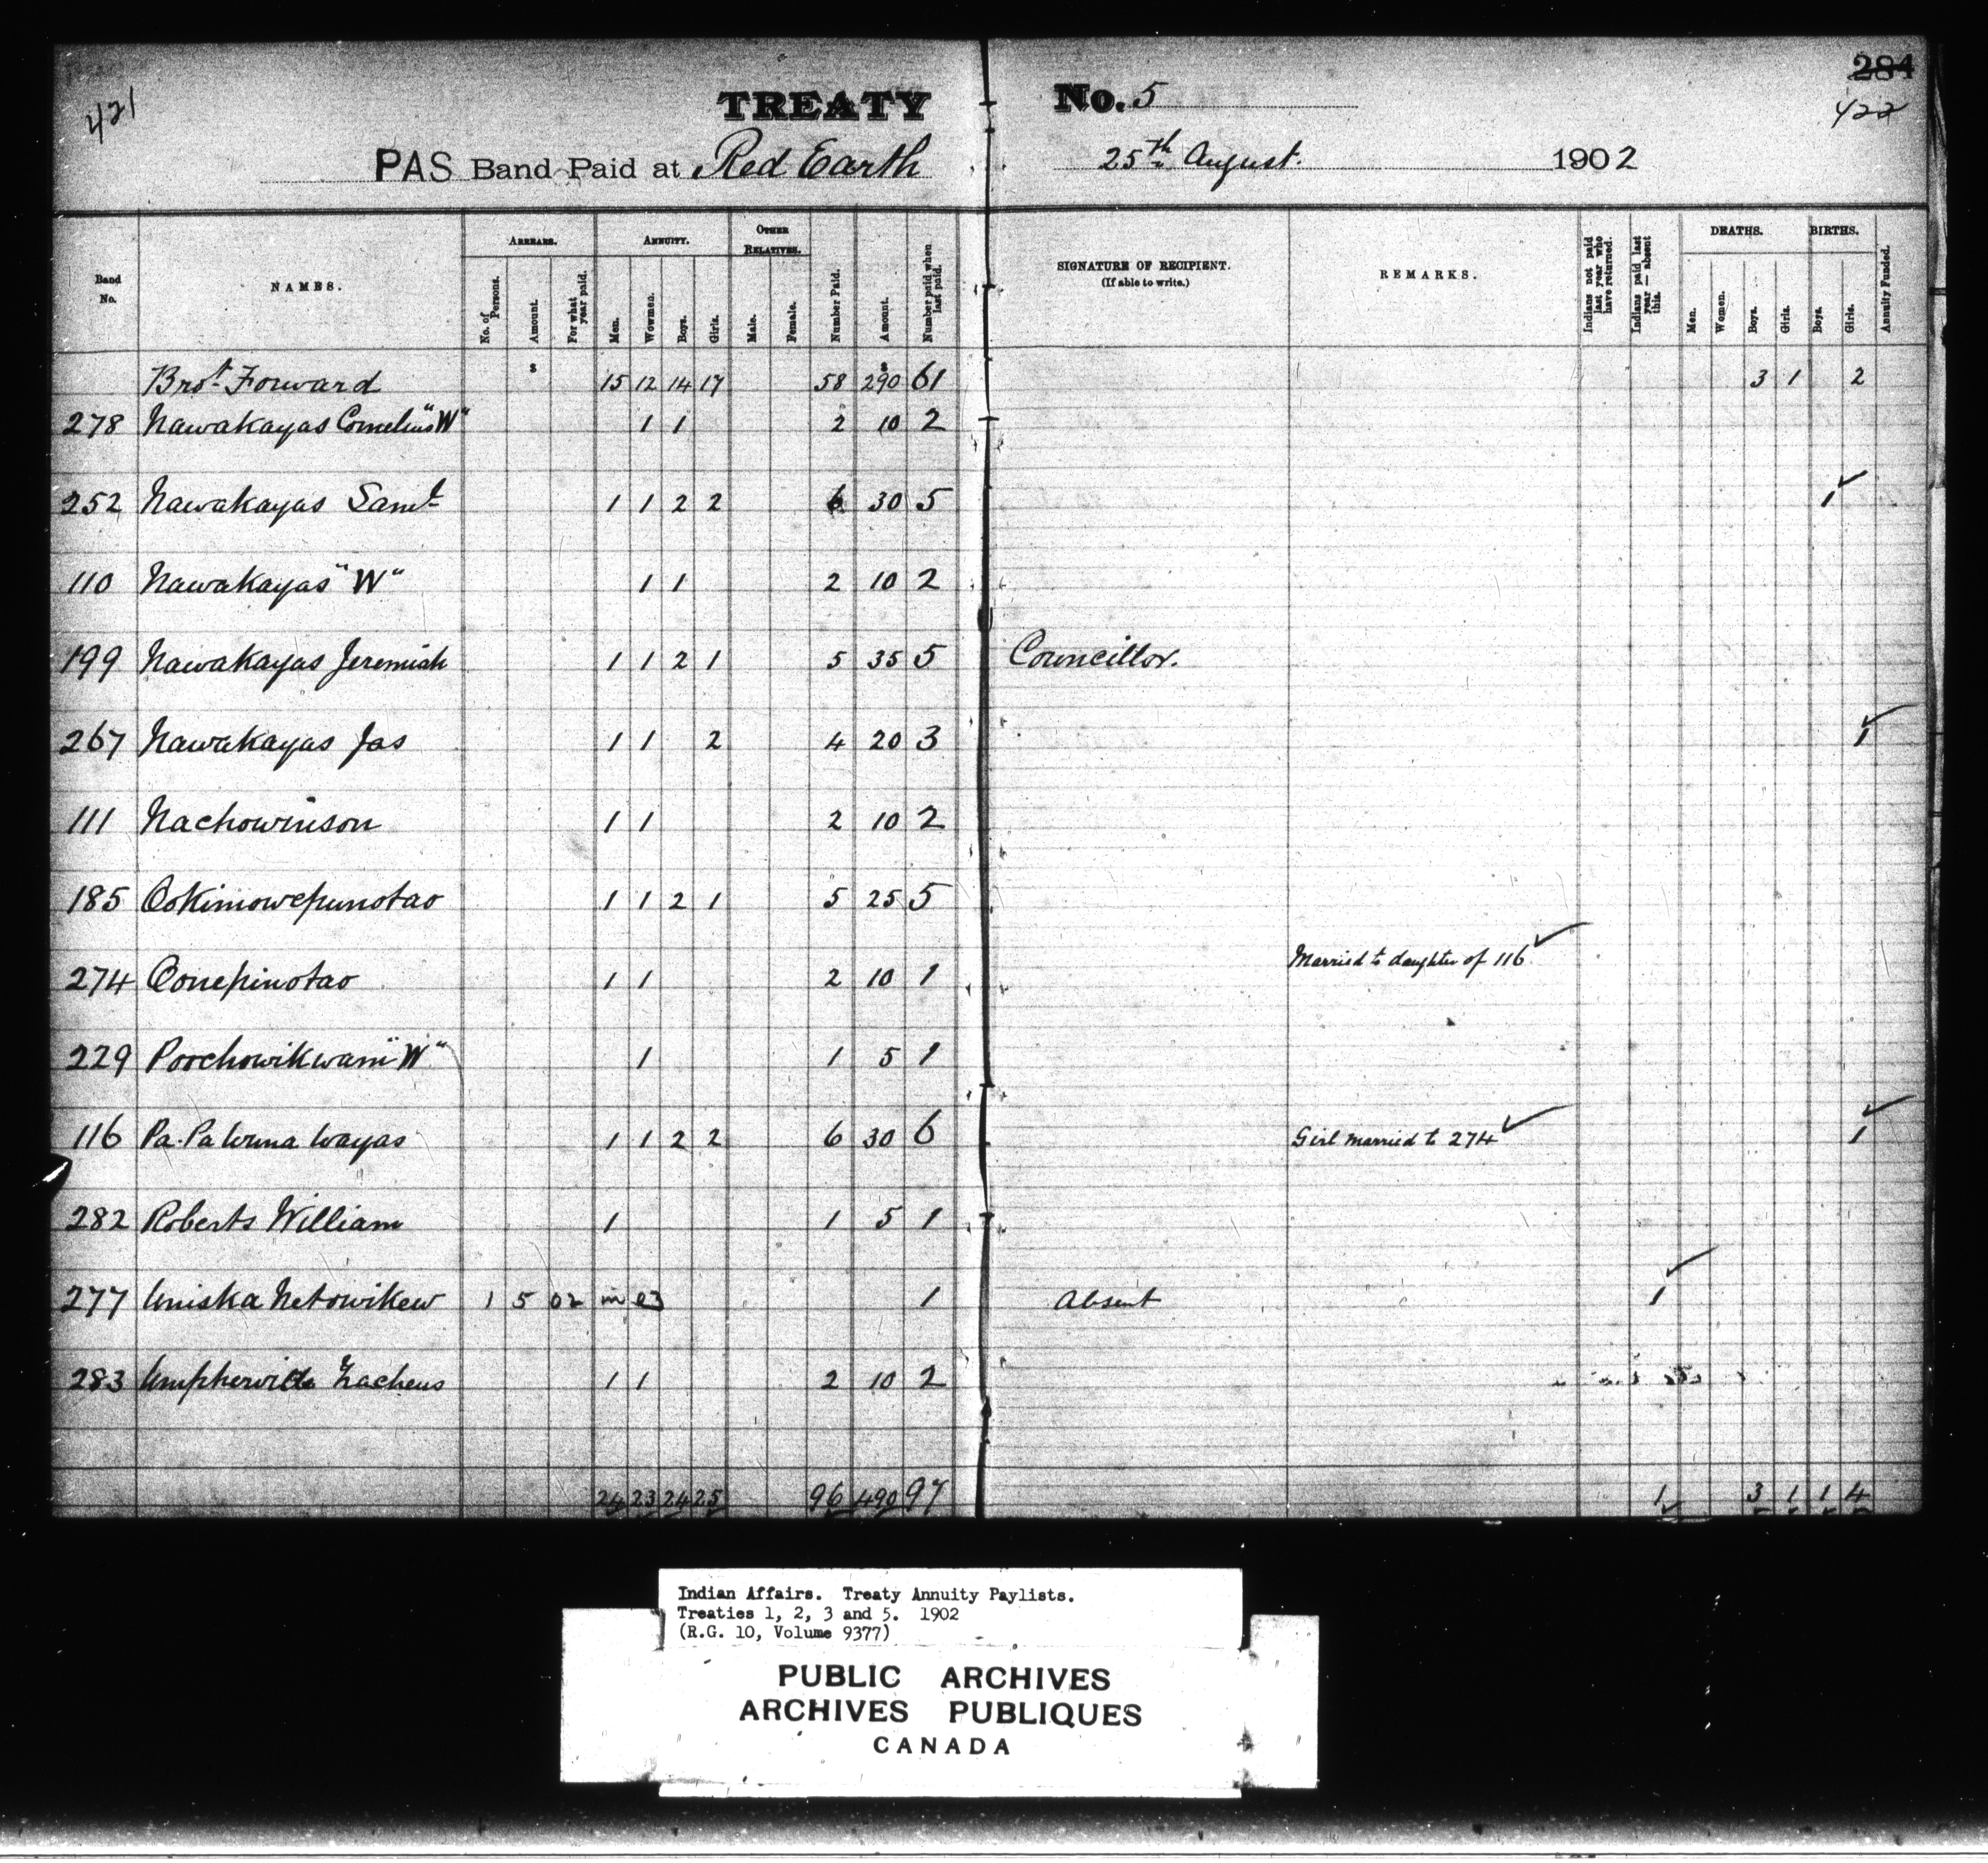 421
284
422
TREATY No. 5
PAS Band Paid at Red Earth 25th August. 1902
Band No.
NAMES.
ARREARS.
No. of Persons.
Amount.
For what year paid.
ANNUITY.
Men.
Wowmen.
Boys.
Girls.
OTHER RELATIVES.
Male.
Female.
Number Paid.
Amount.
Number paid when last paid.
SIGNATURE OF RECIPIENT.
(If able to write.)
REMARKS.
Indians not paid last year who have returned.
Indians paid last year — absent this.
DEATHS.
Men.
Women.
Boys.
Girls.
BIRTHS.
Boys.
Girls.
Annuity Funded.
Brot Forward $ 15 12 14 17 58 $290 61 3 1 2
278 Nawakayas Cornelius "W" 1 1 2 10 2
252 Nawakayas Saml 1 1 2 2 6 30 5 1
110 Nawakayas "W" 1 1 2 10 2
199 Nawakayas Jeremiah 1 1 2 1 5 35 5 Councillor.
267 Nawakayas Jas 1 1 2 4 20 3 1
111 Nachowinson 1 1 2 10 2
185 Ookimowepunotao 1 1 2 1 5 25 5
274 Oonepinotao 1 1 2 10 1 Married to daughter of 116
229 Poochowikwam "W" 1 1 5 1
116 Pa. Pa Wuna Wayas 1 1 2 2 6 30 6 Girl married to 274 1
282 Roberts William 1 1 5 1
277 Uniska Netowikew 1 5 02 in 03 1 Absent 1
283 Umpherville Zacheus 1 1 2 10 2
24 23 24 25 96 490 97 1 3 1 1 4
Indian Affairs. Treaty Annuity Paylists.
Treaties 1, 2, 3 and 5. 1902
(R.G. 10, Volume 9377)
PUBLIC ARCHIVES
ARCHIVES PUBLIQUES
CANADA